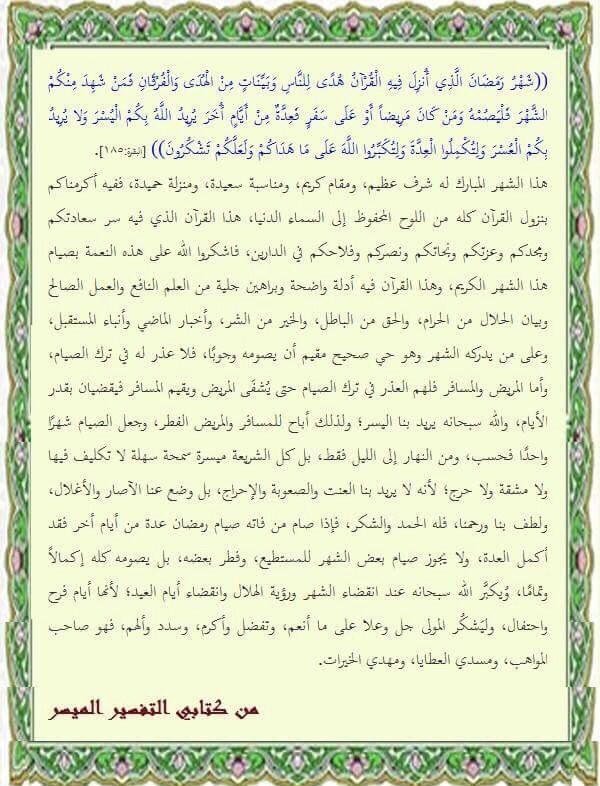 ((شَهْرُ رَمَضَانَ الَّذِي أُنْزِلَ فِيهِ الْقُرْآنُ هُدًى لِلنَّاسِ وَبَيِّنَاتٍ مِنْ الْهُدَى وَالْفُرْقَانِ فَمَنْ شَهِدَ مِنْكُمْ
الشَّهْرَ فَلْيَصُمْهُ وَمَنْ كَانَ مَرِيضاً أَوْ عَلَى سَفَرٍ فَعِدَّةٌ مِنْ أَيَّامٍ أُخَرَ يُرِيدُ اللَّهُ بِكُمْ الْيُسْرَ وَلا يُرِيدُ
بِكُمْ الْعُسْرَ وَلِتُكْمِلُوا الْعِدَّةَ وَلِتُكَبِّرُوا اللَّهَ عَلَى مَا هَدَاكُمْ وَلَعَلَّكُمْ تَشْكُرُونَ)) [البقرة:١٨٥].
هذا الشهر المبارك له شرف عظيم، ومقام كريم، ومناسبة سعيدة، ومنزلة حميدة، ففيه أكرمناكم
بنزول القرآن كله من اللوح المحفوظ إلى السماء الدنيا، هذا القرآن الذي فيه سر سعادتكم
ومجدكم وعزتكم ونجاتكم ونصركم وفلاحكم في الدارين، فاشكروا الله على هذه النعمة بصيام
هذا الشهر الكريم، وهذا القرآن فيه أدلة واضحة وبراهين جلية من العلم النافع والعمل الصالح
وبيان الحلال من الحرام، والحق من الباطل، والخير من الشر، وأخبار الماضي وأنباء المستقبل،
وعلى من يدركه الشهر وهو حي صحيح مقيم أن يصومه وجوبًا، فلا عذر له في ترك الصيام،
وأما المريض والمسافر فلهم العذر في ترك الصيام حتى يُشفَى المريض ويقيم المسافر فيقضيان بقدر
الأيام، والله سبحانه يريد بنا اليسر؛ ولذلك أباح للمسافر والمريض الفطر، وجعل الصيام شهرًا
واحدًا فحسب، ومن النهار إلى الليل فقط، بل كل الشريعة ميسرة سمحة سهلة لا تكليف فيها
ولا مشقة ولا حرج؛ لأنه لا يريد بنا العنت والصعوبة والإحراج، بل وضع عنا الآصار والأغلال،
ولطف بنا ورحمنا، فله الحمد والشكر، فإذا صام من فاته صيام رمضان عدة من أيام أخر فقد
أكمل العدة، ولا يجوز صيام بعض الشهر للمستطيع، وفطر بعضه، بل يصومه كله إكمالاً
وتمامًا، وُيكبَّر الله سبحانه عند انقضاء الشهر ورؤية الهلال وانقضاء أيام العيد؛ لأنها أيام فرح
واحتفال، وليَشكُر المولى جل وعلا على ما أنعم، وتفضل وأكرم، وسدد وألهم، فهو صاحب
المواهب، ومسدي العطايا، ومهدي الخيرات.
من كتابي التفسير الميسر